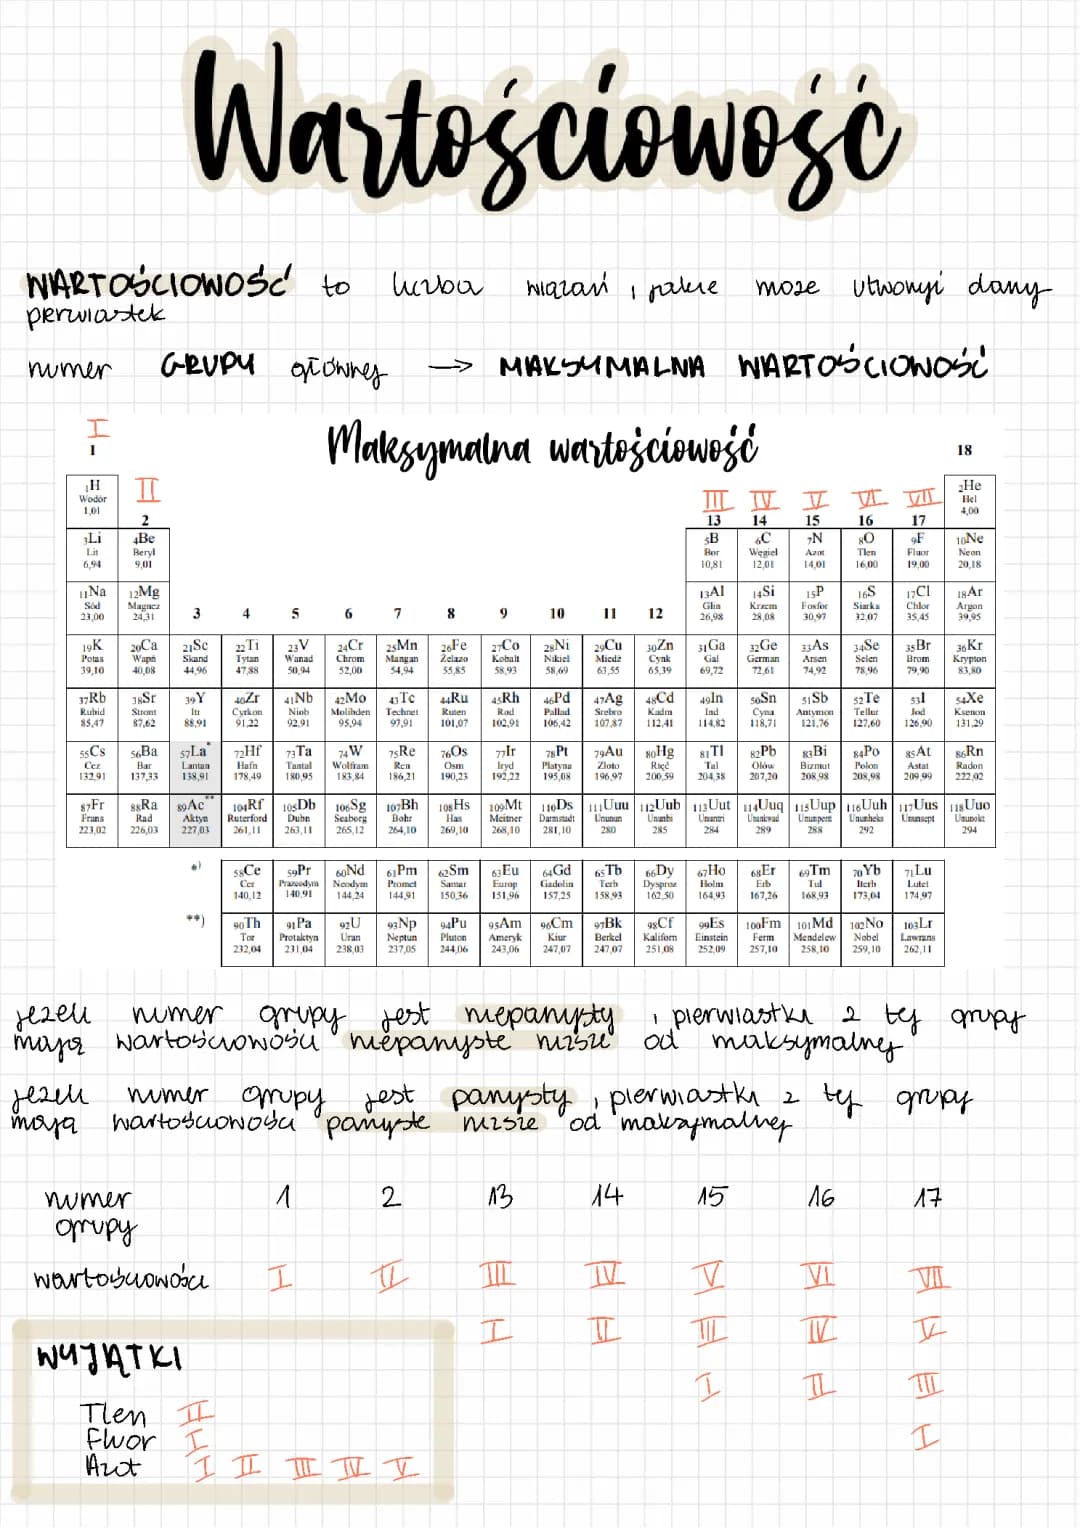 Wartościowość
WARTOŚCIOWOŚĆ to liczba wiązań, jakie może utworzyć dany
pierwiastek
numer GRUPY głównej → MAKSYMALNA WARTOŚCIOWOŚĆ
Maksymalna wartościowość
I II III IV V VI VII
1 2 3 4 5 6 7 8 9 10 11 12 13 14 15 16 17 18
1H Wodór 1,01 2He Hel 4,00
3Li Lit 6,94 4Be Beryl 9,01 5B Bor 10,81 6C Węgiel 12,01 7N Azot 14,01 8O Tlen 16,00 9F Fluor 19,00 10Ne Neon 20,18
11Na Sód 23,00 12Mg Magnez 24,31 13Al Glin 26,98 14Si Krzem 28,08 15P Fosfor 30,97 16S Siarka 32,07 17Cl Chlor 35,45 18Ar Argon 39,95
19K Potas 39,10 20Ca Wapń 40,08 21Sc Skand 44,96 22Ti Tytan 47,88 23V Wanad 50,94 24Cr Chrom 52,00 25Mn Mangan 54,94 26Fe Żelazo 55,85 27Co Kobalt 58,93 28Ni Nikiel 58,69 29Cu Miedź 63,55 30Zn Cynk 65,39 31Ga Gal 69,72 32Ge German 72,61 33As Arsen 74,92 34Se Selen 78,96 35Br Brom 79,90 36Kr Krypton 83,80
37Rb Rubid 85,47 38Sr Stront 87,62 39Y Itr 88,91 40Zr Cyrkon 91,22 41Nb Niob 92,91 42Mo Molibden 95,94 43Tc Technet 97,91 44Ru Ruten 101,07 45Rh Rod 102,91 46Pd Pallad 106,42 47Ag Srebro 107,87 48Cd Kadm 112,41 49In Ind 114,82 50Sn Cyna 118,71 51Sb Antymon 121,76 52Te Tellur 127,60 53I Jod 126,90 54Xe Ksenon 131,29
55Cs Cez 132,91 56Ba Bar 137,33 57La* Lantan 138,91 72Hf Hafn 178,49 73Ta Tantal 180,95 74W Wolfram 183,84 75Re Ren 186,21 76Os Osm 190,23 77Ir Iryd 192,22 78Pt Platyna 195,08 79Au Złoto 196,97 80Hg Rtęć 200,59 81Tl Tal 204,38 82Pb Ołów 207,20 83Bi Bizmut 208,98 84Po Polon 208,98 85At Astat 209,99 86Rn Radon 222,02
87Fr Frans 223,02 88Ra Rad 226,03 89Ac** Aktyn 227,03 104Rf Ruterford 261,11 105Db Dubn 263,11 106Sg Seaborg 265,12 107Bh Bohr 264,10 108Hs Has 269,10 109Mt Meitner 268,10 110Ds Darmstadt 281,10 111Uuu Ununun 280 112Uub Ununbi 285 113Uut Ununtri 284 114Uuq Ununkwad 289 115Uup Ununpent 288 116Uuh Ununheks 292 117Uus Ununsept 118Uuo Ununokt 294
*) 58Ce Cer 140,12 59Pr Prazeodym 140,91 60Nd Neodym 144,24 61Pm Promet 144,91 62Sm Samar 150,36 63Eu Europ 151,96 64Gd Gadolin 157,25 65Tb Terb 158,93 66Dy Dysproz 162,50 67Ho Holm 164,93 68Er Erb 167,26 69Tm Tul 168,93 70Yb Iterb 173,04 71Lu Lutet 174,97
**) 90Th Tor 232,04 91Pa Protaktyn 231,04 92U Uran 238,03 93Np Neptun 237,05 94Pu Pluton 244,06 95Am Ameryk 243,06 96Cm Kiur 247,07 97Bk Berkel 247,07 98Cf Kaliforn 251,08 99Es Einstein 252,09 100Fm Ferm 257,10 101Md Mendelew 258,10 102No Nobel 259,10 103Lr Lawrans 262,11
jeżeli numer grupy jest nieparzysty, pierwiastki z tej grupy
mają wartościowości nieparzyste niższe od maksymalnej
jeżeli numer grupy jest parzysty, pierwiastki z tej grupy
mają wartościowości parzyste niższe od maksymalnej
numer 1 2 13 14 15 16 17
grupy
wartościowości I II III IV V VI VII
I II III IV V
I II III
I
WYJĄTKI
Tlen II
Fluor I
Azot I II III IV V